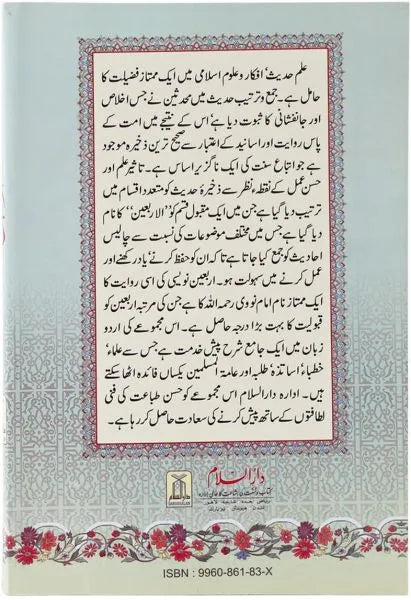 علم حدیث' افکار و علوم اسلامی میں ایک ممتاز فضیلت کا
حامل ہے۔ جمع و ترتیب حدیث میں محدثین نے جس اخلاص
اور جانفشانی کا ثبوت دیا ہے' اس کے نتیجے میں امت کے
پاس روایت اور اسانید کے اعتبار سے صحیح ترین ذخیرہ موجود
ہے جو اتباع سنت کی ایک ناگزیر اساس ہے۔ تاثیر علم اور
حسن عمل کے نقطۂ نظر سے ذخیرۂ حدیث کو متعدد اقسام میں
ترتیب دیا گیا ہے جن میں ایک مقبول قسم کو "الاربعین" کا نام
دیا گیا ہے جس میں مختلف موضوعات کی نسبت سے چالیس
احادیث کو جمع کیا جاتا ہے تاکہ ان کو حفظ کرنے' یاد رکھنے اور
عمل کرنے میں سہولت ہو۔ اربعین نویسی کی اسی روایت کا
ایک ممتاز نام امام نووی رحمہ اللہ کا ہے جن کی مرتبہ اربعین کو
قبولیت کا بہت بڑا درجہ حاصل ہے۔ اس مجموعے کی اردو
زبان میں ایک جامع شرح پیش خدمت ہے جس سے علماء'
خطباء' اساتذہ' طلبہ اور عامۃ المسلمین یکساں فائدہ اٹھا سکتے
ہیں۔ ادارہ دارالسلام اس مجموعے کو حسن طباعت کی فنی
لطافتوں کے ساتھ پیش کرنے کی سعادت حاصل کر رہا ہے۔
دارالسلام
کتاب و سنت کی اشاعت کا عالمی ادارہ
ISBN : 9960-861-83-X